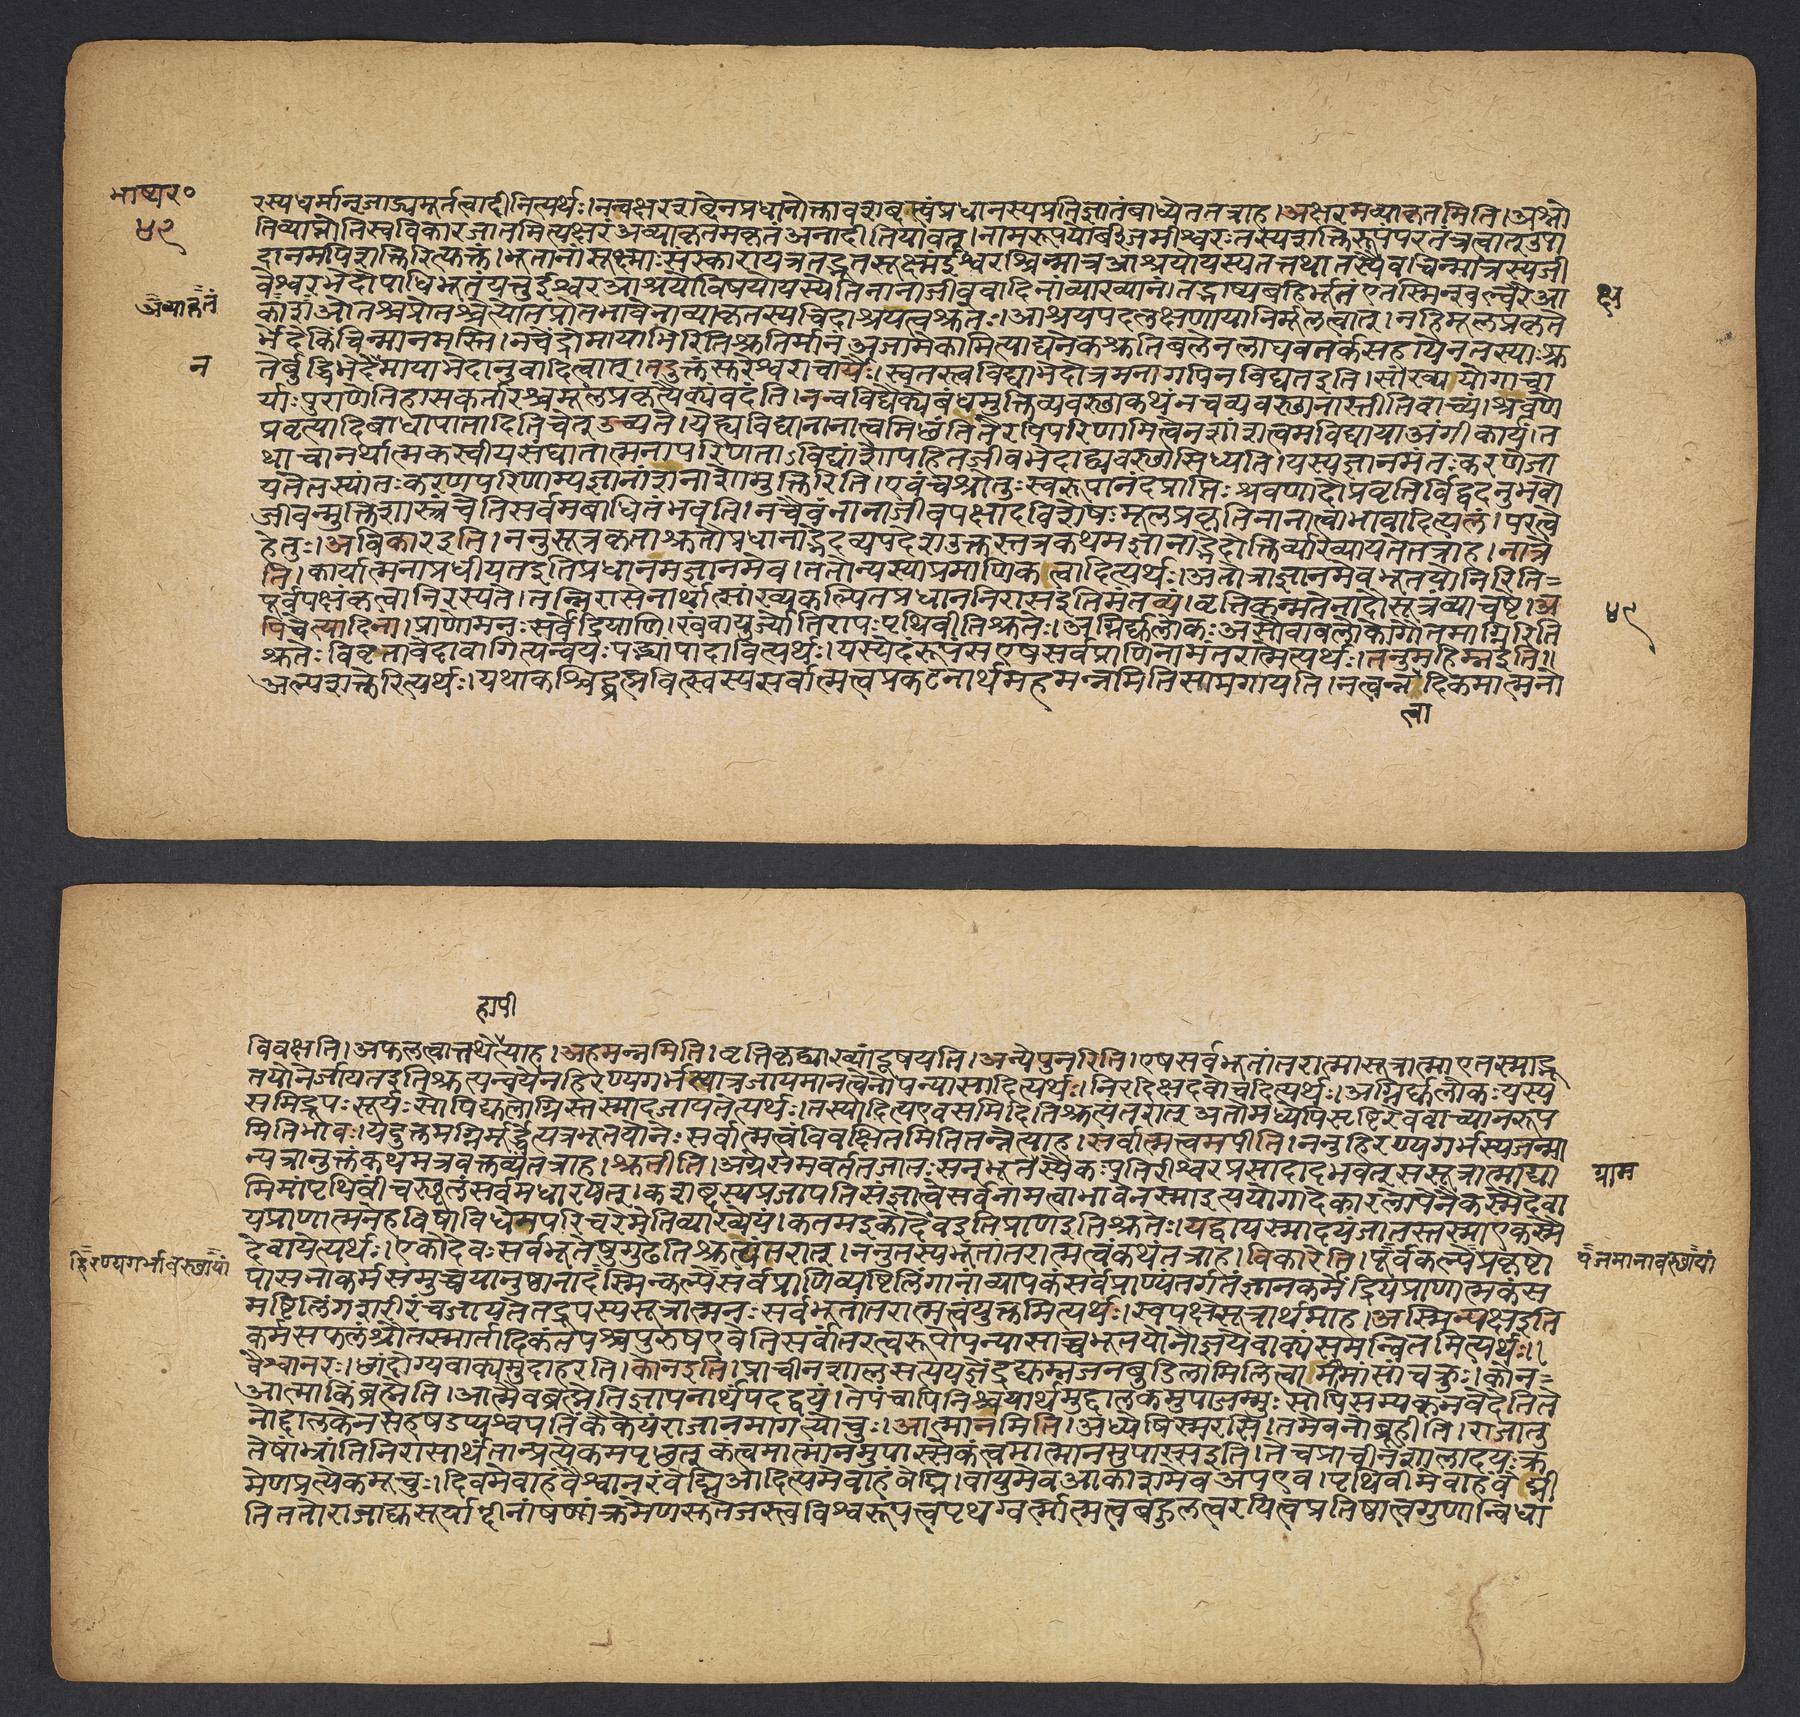 भाष्यर०
४९
रस्यधर्मानृजाड्यमूर्तत्वादीनित्यर्थः।नन्वक्षरशब्देनप्रधानोक्तावशब्दत्वंप्रधानस्यप्रतिज्ञातंबाध्येततत्राह।अक्षरमव्याकृतमिति।अश्नो
तिव्याप्नोतिस्वविकारजातमित्यक्षरंअव्याकृतमकृतंअनादीतियावत्।नामरूपयोर्बीजमीश्वरःतस्यशक्तिरूपंपरतंत्रत्वात्उपा
दानमपिशक्तिरित्युक्तं।भूतानांसूक्ष्माःसंस्कारायत्रतद्भूतसूक्ष्मंईश्वरश्चिन्मात्रआश्रयोयस्यतत्तथातस्यैवचिन्मात्रस्यजी
वेश्वरभेदोपाधिभूतंयत्तुईश्वरआश्रयोविषयोयस्येतिनानाजीववादिनांव्याख्यानं।तद्भाष्यबहिर्भूतंएतस्मिन्खल्वक्षरेआ
क्ष
अव्याकृतं
काशओतश्चप्रोतश्चेत्योतप्रोतभावेनाव्याकृतस्यचिदाश्रयत्वश्रुतेः।आश्रयपदलक्षणायानिर्मूलत्वात्।नहिमूलप्रकृते
र्भेदेकिंचिन्मानमस्ति।नचेंद्रोमायाभिरितिश्रुतिर्मानंअजामेकामित्याद्यनेकश्रुतिबलेनलाघवतर्कसहायेनतस्याःश्रु
न
तेर्बुद्धिभेदेमायाभेदानुवादित्वात्।तदुक्तंसुरेश्वराचार्यैः।स्वतस्त्वविद्याभेदोत्रमनागपिनविद्यतइति।सांख्ययोगाचा
र्याःपुराणेतिहासकर्तारश्चमूलप्रकृत्यैक्यंवदंति।नन्वविद्यैक्येबंधमुक्तिव्यवस्थाकथंनचव्यवस्थानास्तीतिवाच्यं।श्रवण
प्रवृत्यादिबाधापातादितिचेत्उच्यते।येह्यविद्यानानात्वमिछंतितैरपिपरिणामित्वेनशांशत्वमविद्यायाअंगीकार्यं।त
थाचानर्थात्मकस्वीयसंघातात्मनापरिणताऽविद्यांशोपहितजीवभेदाद्व्यवस्थासिध्यति।यस्यज्ञानमंतःकरणेजा
यतेतस्यांतःकरणपरिणाम्यज्ञानांशनाशोमुक्तिरिति।एवंचश्रोतुःस्वरूपानंदप्राप्तिःश्रवणादौप्रवृत्तिर्विद्वदनुभवो
जीवन्मुक्तिशास्त्रंचेतिसर्वमबाधितंभवति।नचैवंनानाजीवपक्षादविशेषःमूलप्रकृतिनानात्वाभावादित्यलं।परत्वे
हेतुः।अविकारइति।ननुसूत्रकृताश्रुतौप्रधानाद्भेदव्यपदेशउक्तस्तत्रकथमज्ञानाद्भेदोक्तिर्व्याख्यायतेतत्राह।नात्रे
ति।कार्यात्मनाप्रधीयतइतिप्रधानमज्ञानमेव।ततोन्यस्याप्रमाणिकत्वादित्यर्थः।अतोत्राज्ञानमेवभूतयोनिरिति=
पूर्वपक्षंकृत्वानिरस्यते।तन्निरासेनार्थात्सांख्यकल्पितप्रधाननिरासइतिमंतव्यं।वृत्तिकृन्मतेनादौसूत्रंव्याचष्टे।अ
४९
पिचेत्यादिना।प्राणोमनःसर्वेंद्रियाणि।खंवायुर्ज्योतिरापःपृथिवीतिश्रुतेः।अग्निर्द्युलोकःअसौवावलोकोगौतमाग्निरिति
श्रुतेःविवृतावेदावागित्यन्वयःपद्भ्यांपादावित्यर्थः।यस्येदंरूपंसएषसर्वप्राणिनामंतरात्मेत्यर्थः।तनुमहिम्नइति॥
अल्पशक्तेरित्यर्थः।यथाकश्चिद्ब्रह्मवित्स्वस्यसर्वात्मत्वप्रकटनार्थमहमन्नमितिसामगायति।नत्वन्नादिकमात्मनो
त्वा
हापी
विवक्षति।अफलत्वात्तथेत्याह।अहमन्नमिति।वृत्तिकृद्व्याख्यांदूषयति।अन्येपुनरिति।एषसर्वभूतांतरात्मासूत्रात्माएतस्माद्भू
तयोनेर्जायतइतिश्रुत्यन्वयेनहिरण्यगर्भस्यात्रजायमानत्वेनोपन्यासादित्यर्थः।निरदिक्षदवोचदित्यर्थः।अग्निर्द्युलोकःयस्य
समिद्रूपःसूर्यःसोपिद्युलोग्निस्तस्मादजायतेत्यर्थः।तस्यादित्यएवसमिदितिश्रुत्यंतरात्अतोमध्येपिसृष्टिरेववाच्यानरूप
मितिभावः।यदुक्तमग्निर्मूर्द्धेत्यत्रभूतयोनेःसर्वात्मत्वंविवक्षितमितितन्नेत्याह।सर्वात्मत्वमपीति।ननुहिरण्यगर्भस्यजन्मा
न्यत्रानुक्तंकथमत्रवक्तव्यंतत्राह।श्रुतीति।अग्रेसमवर्ततजातःसन्भूतस्यैकःपतिरीश्वरप्रसादादभवत्ससूत्रात्माद्या
ग्राम
मिमांपृथिवींचस्थूलंसर्वमधारयत्।कशब्दस्यप्रजापतिसंज्ञात्वेसर्वनामत्वाभावेनस्माइत्ययोगादेकारलोपेनैकस्मैदेवा
यप्राणात्मनेहविषाविधेमपरिचरेमेतिव्याख्येयं।कतमइकोदेवइतिप्राणइतिश्रुतेः।यद्वायस्मादयंजातस्तस्माएकस्मै
देवायेत्यर्थः।एकोदेवःसर्वभूतेषुगुढेतिश्रुत्यंतरात्।ननुतस्यभूतांतरात्मत्वंकथंतत्राह।विकारेति।पूर्वकल्पेप्रकृष्टो
हिरण्यगर्भावस्थायां
यजमानावस्थायां
पासनाकर्मसमुच्चयानुष्ठानादस्मिन्कल्पेसर्वप्राणिव्यष्टिलिंगानांव्यापकंसर्वप्राण्यंतर्गतंज्ञानकर्मेंद्रियप्राणात्मकंस
मष्टिलिंगशरीरंचजायतेतद्रूपस्यसूत्रात्मनःसर्वभूतांतरात्मत्वंयुक्तमित्यर्थः।स्वपक्षेसूत्रार्थमाह।अस्मिन्पक्षइति
कर्मसफलंश्रौतस्मार्तादिकंतपश्चपुरुषएवेतिसर्वांतरत्वरूपोपन्यासाच्चभूतयोनौज्ञेयेवाक्यंसमन्वितमित्यर्थः।
वैश्वानरः।छांदोग्यवाक्यमुदाहरति।कोनइति।प्राचीनशालसत्ययज्ञेंद्रद्युम्नजनबुडिलामिलित्वामीमांसांचक्रुः।कोन=
आत्माकिंब्रह्मेति।आत्मैवब्रह्मेतिज्ञापनार्थंपदद्वयं।तेपंचापिनिश्चयार्थमुद्दालकमुपाजग्मुःसोपिसम्यक्नवेदेतिते
नोद्दालकेनसहषडप्यश्वपतिंकैकेयंराजानमागत्योचुः।आत्मानमिति।अध्येषिस्मरसि।तमेवनोब्रूहीति।राजातु
तेषांभ्रांतिनिरासार्थंतान्प्रत्येकमपृछत्कंत्वमात्मानमुपास्सेकंत्वमात्मानमुपास्सइति।तेचप्राचीनशालादयःक्र
मेणप्रत्येकमूचुः।दिवमेवाहंवैश्वानरंवेद्मिआदित्यमेवाहंवेद्मि।वायुमेवआकाशमेवअपएव।पृथिवीमेवाहंवेद्मी
तिततोराजाद्युसूर्यादीनांषण्णांक्रमेणसुतेजस्त्वविश्वरूपत्वपृथग्वर्त्मात्मत्वबहुलत्वरयित्वप्रतिष्ठात्वगुणान्विधा